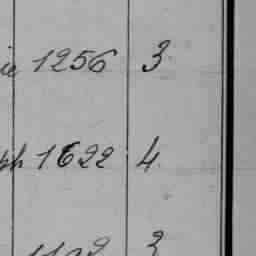 ie 1256 3
ph 1622 4
3